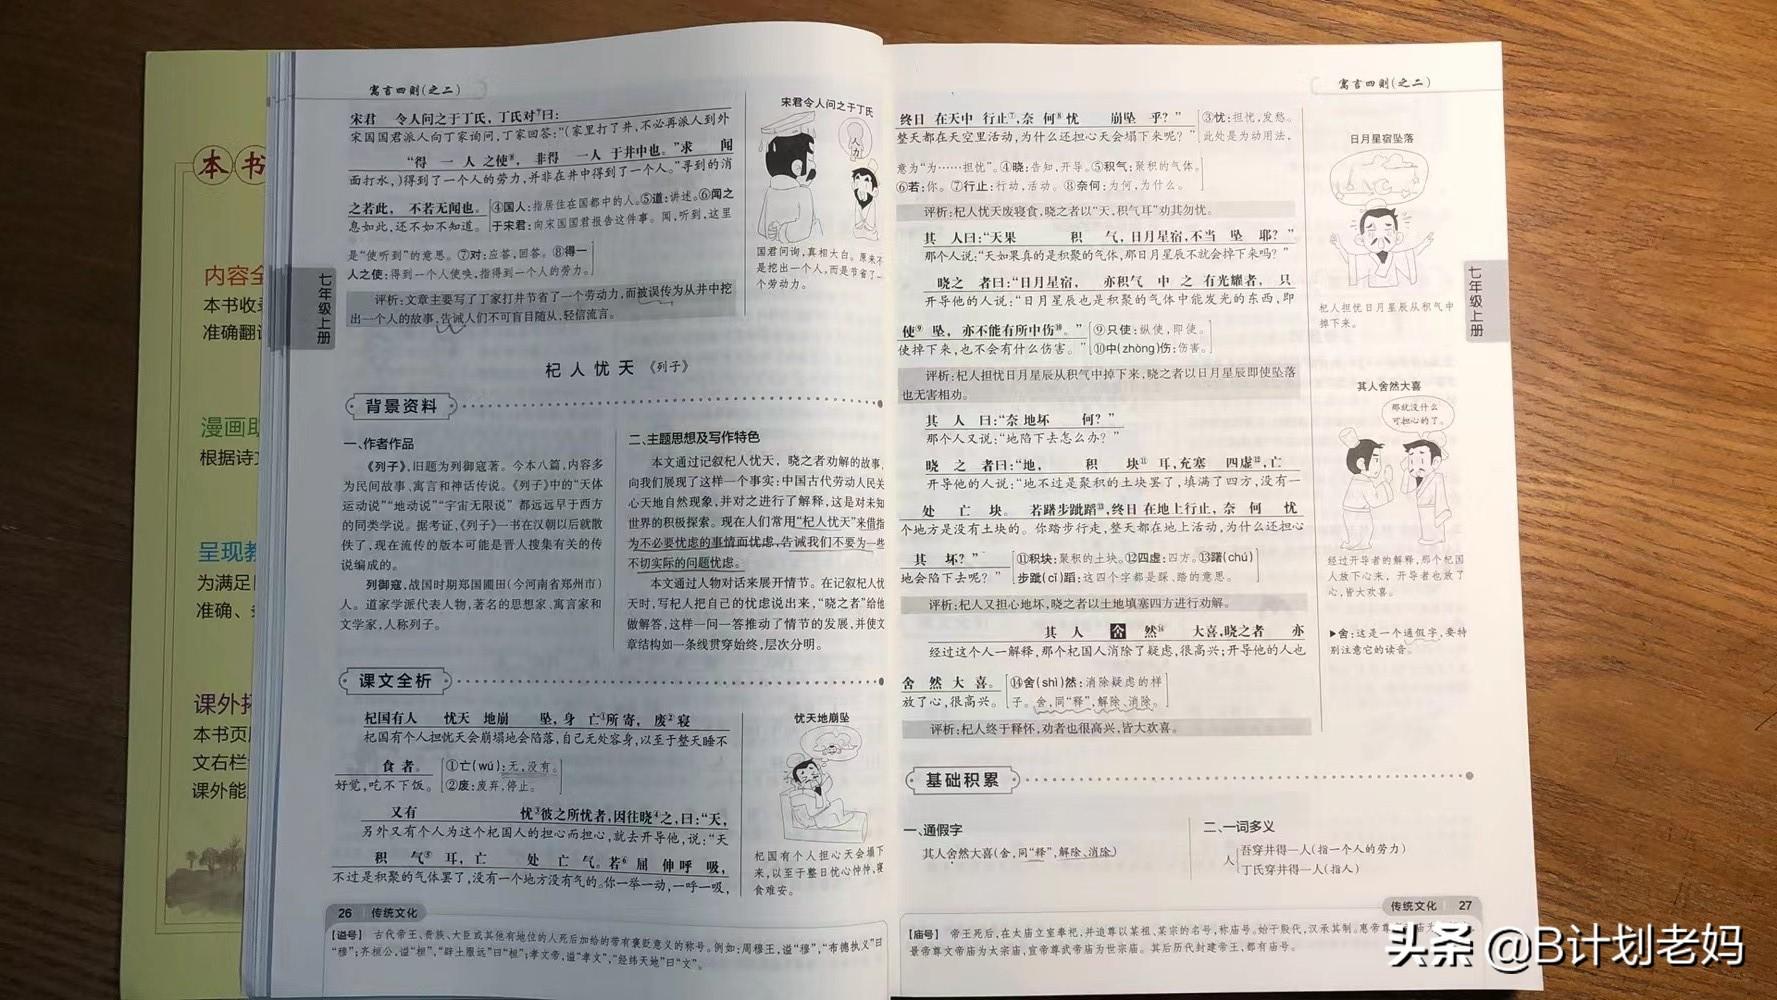 本书
内容全
本书收录
准确翻译
漫画助
根据诗文
呈现教
为满足
准确、
课外拓
本书页
文右栏
课外能
寓言四则(之二)
七年级上册
宋君 令人问之于丁氏,丁氏对⑦曰:
宋国国君派人向丁家询问,丁家回答:“(家里打了井,不必再派人到外
“得 一 人 之使⑧, 非得 一人 于井中也。”求 闻
面打水,)得到了一个人的劳力,并非在井中得到了一个人。”寻到的消
之若此, 不若无闻也。
息如此,还不如不知道。
④国人:指居住在国都中的人。⑤道:讲述。⑥闻之
于宋君:向宋国国君报告这件事。闻,听到,这里
是“使听到”的意思。⑦对:应答,回答。⑧得一
人之使:得到一个人使唤,指得到一个人的劳力。
评析:文章主要写了丁家打井节省了一个劳动力,而被误传为从井中挖
出一个人的故事,告诫人们不可盲目随从,轻信流言。
宋君令人问之于丁氏
人力
国君问询,真相大白。原来不
是挖出一个人,而是节省了一
个劳动力。
杞人忧天《列子》
背景资料
一、作者作品
《列子》,旧题为列御寇著。今本八篇,内容多
为民间故事、寓言和神话传说。《列子》中的“天体
运动说”“地动说”“宇宙无限说” 都远远早于西方
的同类学说。据考证,《列子》一书在汉朝以后就散
佚了,现在流传的版本可能是晋人搜集有关的传
说编成的。
列御寇,战国时期郑国圃田(今河南省郑州市)
人。道家学派代表人物,著名的思想家、寓言家和
文学家,人称列子。
二、主题思想及写作特色
本文通过记叙杞人忧天,晓之者劝解的故事,
向我们展现了这样一个事实:中国古代劳动人民关
心天地自然现象,并对之进行了解释,这是对未知
世界的积极探索。现在人们常用“杞人忧天”来借指
为不必要忧虑的事情而忧虑,告诫我们不要为一些
不切实际的问题忧虑。
本文通过人物对话来展开情节。在记叙杞人忧
天时,写杞人把自己的忧虑说出来,“晓之者”给他
做解答,这样一问一答推动了情节的发展,并使文
章结构如一条线贯穿始终,层次分明。
课文全析
杞国有人 忧天 地崩 坠,身 亡①所寄, 废②寝
杞国有个人担忧天会崩塌地会陷落,自己无处容身,以至于整天睡不
食者。
好觉,吃不下饭。
①亡(wú):无,没有。
②废:废弃,停止。
又有 忧③彼之所忧者,因往晓④之,曰:“天,
另外又有个人为这个杞国人的担心而担心,就去开导他,说:“天
积 气⑤ 耳,亡 处 亡 气。若⑥ 屈 伸 呼 吸,
不过是积聚的气体罢了,没有一个地方没有气的。你一举一动,一呼一吸,
忧天地崩坠
杞国有个人担心天会塌下
来,以至于整日忧心忡忡,寝
食难安。
26 传统文化
【谥号】 古代帝王、贵族、大臣或其他有地位的人死后加给的带有褒贬意义的称号。例如:周穆王,谥“穆”,“布德执义”曰
“穆”;齐桓公,谥“桓”,“辟土服远”曰“桓”;孝文帝,谥“孝文”,“经纬天地”曰“文”。
寓言四则(之二)
七年级上册
终日 在天中 行止⑦,奈何⑧ 忧 崩坠 乎?”
整天都在天空里活动,为什么还担心天会塌下来呢?”
③忧:担忧,发愁。
此处是为动用法,
意为“为……担忧”。④晓:告知,开导。⑤积气:聚积的气体。
⑥若:你。⑦行止:行动,活动。⑧奈何:为何,为什么。
评析:杞人忧天废寝食,晓之者以“天,积气耳”劝其勿忧。
其 人曰:“天果 积 气,日月星宿,不当 坠 耶?”
那个人说:“天如果真的是积聚的气体,那日月星辰不就会掉下来吗?”
晓之 者曰:“日月星宿, 亦积气 中 之 有光耀者, 只
开导他的人说:“日月星辰也是积聚的气体中能发光的东西,即
使⑨ 坠,亦不能有所中伤⑩。”
使掉下来,也不会有什么伤害。”
⑨只使:纵使,即使。
⑩中(zhòng)伤:伤害。
评析:杞人担忧日月星辰从积气中掉下来,晓之者以日月星辰即使坠落
也无害相劝。
其 人 曰:“奈 地坏 何?”
那个人又说:“地陷下去怎么办?”
晓 之 者曰:“地, 积 块⑪ 耳,充塞 四虚⑫,亡
开导他的人说:“地不过是聚积的土块罢了,填满了四方,没有一
处 亡 块。 若躇步跐蹈⑬,终日 在地上行止,奈 何 忧
个地方是没有土块的。你踏步行走,整天都在地上活动,为什么还担心
其 坏?”
地会陷下去呢?”
⑪积块:聚积的土块。⑫四虚:四方。⑬躇(chú)
步跐(cǐ)蹈:这四个字都是踩、踏的意思。
评析:杞人又担心地坏,晓之者以土地填塞四方进行劝解。
其 人 舍 然⑭ 大喜,晓之者 亦
经过这个人一解释,那个杞国人消除了疑虑,很高兴;开导他的人也
舍 然 大 喜。
放了心,很高兴。
⑭舍(shì)然:消除疑虑的样
子。舍,同“释”,解除、消除。
评析:杞人终于释怀,劝者也很高兴,皆大欢喜。
日月星宿坠落
杞人担忧日月星辰从积气中
掉下来。
其人舍然大喜
那就没什么
可担心的了。
经过开导者的解释,那个杞国
人放下心来,开导者也放了
心,皆大欢喜。
▶舍:这是一个通假字,要特
别注意它的读音。
基础积累
一、通假字
其人舍然大喜(舍,同“释”,解除、消除)
二、一词多义
人
吾穿井得一人(指一个人的劳力)
丁氏穿井得一人(指人)
传统文化 27
【庙号】 帝王死后,在太庙立室奉祀,并追尊以某祖、某宗的名号,称庙号。始于殷代,汉承其制。惠帝尊
景帝尊文帝庙为太宗庙,宣帝尊武帝庙为世宗庙。其后历代封建帝王,都有庙号。
头条 @B计划老妈